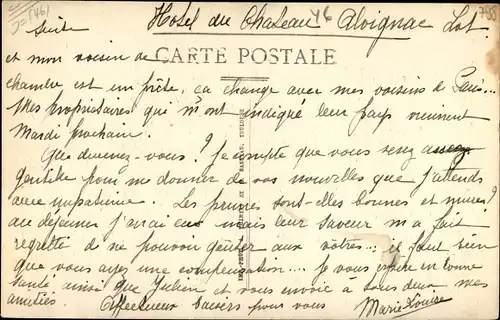 Hotel du Chateau Alvignac Lot.
Suite
CARTE POSTALE
et mon voisin de
chambre est un prêtre, ça change avec mes voisins de Paris...
Mes propriétaires qui m'ont indiqué leur pays viennent
Mardi prochain.
Que devenez-vous? Je compte que vous serez assez
gentille pour me donner de vos nouvelles que j'attends
avec impatience. Les prunes sont-elles bonnes et mures?
au déjeuner j'en ai eu mais leur saveur m'a fait
regretter de ne pouvoir goûter aux votres... il faut bien
que vous ayez une compensation... Je vous espère en bonne
santé ainsi que Julien et vous envoie à tous deux mes
amitiés. Affectueux baisers pour vous
Marie-Louise